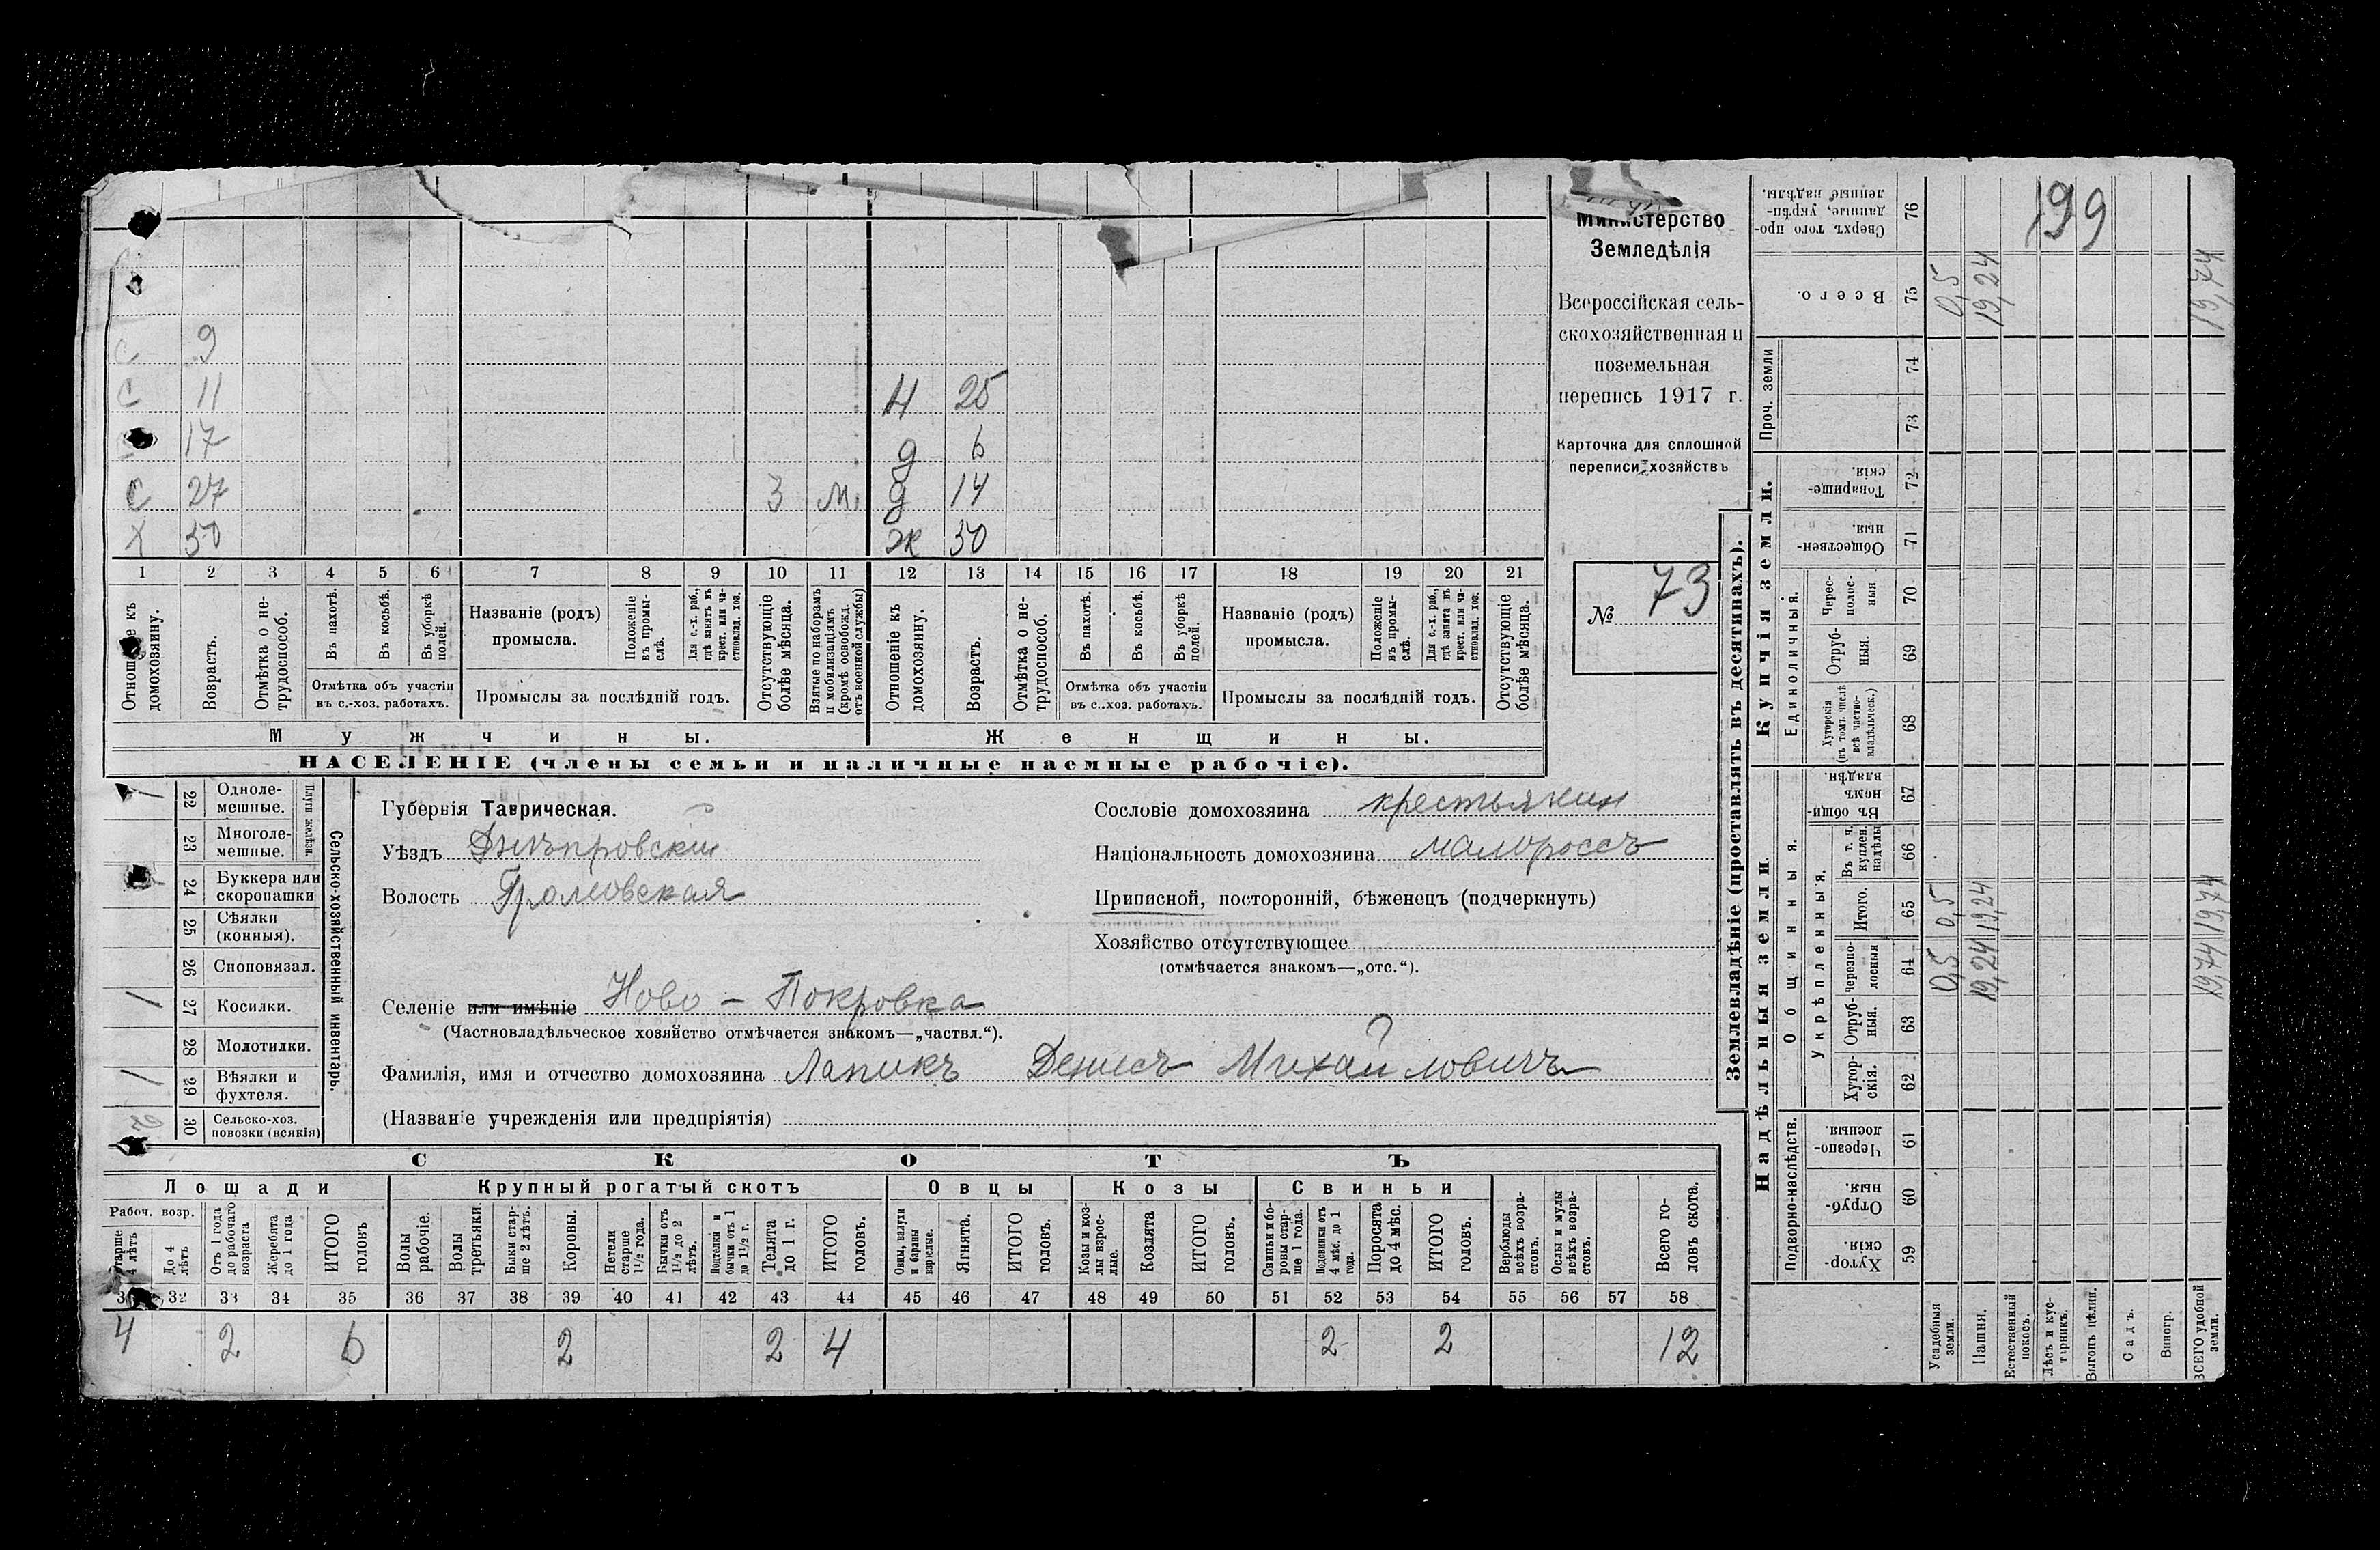 С 9
С 11 Н 25
17 д 6
С 27 3 м. д 14
Х 50 ж 50
1 2 3 4 5 6 7 8 9 10 11 12 13 14 15 16 17 18 19 20 21
Отношеніе къ домохозяину.
Возрастъ.
Отмѣтка о не-
трудоспособ.
Въ пахотѣ.
Въ косьбѣ.
Въ уборкѣ
полей.
Отмѣтка объ участіи
въ с.-хоз. работахъ.
Названіе (родъ)
промысла.
Положеніе
въ промы-
слѣ.
Для с.-х. раб.,
гдѣ занятъ въ
крест. или ча-
стновлад. хоз.
Промыслы за послѣдній годъ.
Отсутствующіе
болѣе мѣсяца.
Взятые по наборамъ
и мобилизаціямъ
(кромѣ освобожд.
отъ военной службы)
Отношеніе къ
домохозяину.
Возрастъ.
Отмѣтка о не-
трудоспособ.
Въ пахотѣ.
Въ косьбѣ.
Въ уборкѣ
полей.
Отмѣтка объ участіи
въ с..хоз. работахъ.
Названіе (родъ)
промысла.
Положеніе
въ промы-
слѣ.
Для с.-х. раб.,
гдѣ занята въ
крест. или ча-
стновлад. хоз.
Промыслы за послѣдній годъ.
Отсутствующіе
болѣе мѣсяца.
Мужчины. Женщины.
НАСЕЛЕНІЕ (члены семьи и наличные наемные рабочіе).
Министерство
Земледѣлія
Всероссійская сель-
скохозяйственная и
поземельная
перепись 1917 г.
Карточка для сплошной
переписи хозяйствъ
№ 73
Сельско-хозяйственный инвентарь.
Плуги желѣзн.
/ 22 Одноле-
мешные.
23 Многоле-
мешные.
24 Буккера или
скоропашки
25 Сѣялки
(конныя).
26 Сноповязал.
/ 27 Косилки.
28 Молотилки.
/ 29 Вѣялки и
фухтеля.
2 30 Сельско-хоз.
повозки (всякія)
Губернія Таврическая.
Уѣздъ Днѣпровскій
Волость Громовская
Селеніе или имѣніе Ново - Покровка
(Частновладѣльческое хозяйство отмѣчается знакомъ—„частвл.“).
Фамилія, имя и отчество домохозяина Лапикъ Денисъ Михайловичъ
(Названіе учрежденія или предпріятія)
Сословіе домохозяина крестьянин
Національность домохозяина малороссъ
Приписной, посторонній, бѣженецъ (подчеркнуть)
Хозяйство отсутствующее
(отмѣчается знакомъ—„отс.“).
СКОТЪ
Лошади Крупный рогатый скотъ Овцы Козы Свиньи
Рабоч. возр.
Старше
4 лѣтъ
До 4
лѣтъ
Отъ 1 года
до рабочаго
возраста
Жеребята
до 1 года
ИТОГО
головъ
Волы
рабочіе.
Волы
третьяки.
Быки стар-
ше 2 лѣтъ.
Коровы.
Нетели
старше
1½ года.
Бычки отъ
1½ до 2
лѣтъ.
Подтелки и
бычки отъ 1
до 1½ г.
Телята
до 1 г.
ИТОГО
головъ.
Овцы, валухи
и бараны
взрослые.
Ягнята.
ИТОГО
головъ.
Козы и коз-
лы взрос-
лые.
Козлята
ИТОГО
головъ.
Свиньи и бо-
ровы стар-
ше 1 года.
Подсвинки отъ
4 мѣс. до 1
года.
Поросята
до 4 мѣс.
ИТОГО
головъ.
Верблюды
всѣхъ возра-
стовъ.
Ослы и мулы
всѣхъ возра-
стовъ.
Всего го-
ловъ скота.
32 33 34 35 36 37 38 39 40 41 42 43 44 45 46 47 48 49 50 51 52 53 54 55 56 57 58
4 2 6 2 2 4 2 2 12
Землевладѣніе (проставлять въ десятинахъ).
Надѣльныя земли
Купчія земли.
Проч. земли
Подворно-наслѣдств.
Общинныя.
Укрѣпленныя.
Единоличныя.
Хутор-
скія. 59
Отруб-
ныя. 60
Черезпо-
лосныя. 61
Хутор-
скія. 62
Отруб-
ныя. 63
Черезпо-
лосныя 64
Итого. 65
Въ т. ч.
куплен.
надѣлы 66
Въ общин-
номъ
владѣн. 67
Хуторскія
(въ томъ числѣ
всѣ частно-
владѣльческ.) 68
Отруб-
ныя. 69
Черес-
полос-
ныя 70
Обществен-
ныя. 71
Товарище-
скія. 72
73
74
Всего. 75
Сверхъ того про-
данные, укрѣп-
ленные надѣлы. 76
Усадебныя
земли. 0,5 0,5 0,5
Пашня. 19,24 19,24 19,24
Естественный
покосъ.
Лѣсъ и кус-
тарникъ.
Выгонъ цѣлин.
Садъ.
Виногр.
ВСЕГО удобной
земли. 19,74 19,74 19,74
199